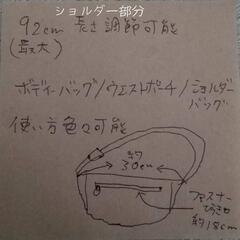 ショルダー部分
92cm 長さ調節可能
(最大)
ボディーバッグ/ウエストポーチ/ショルダー
バッグ
使い方色々可能
約
30cm
ファスナー
ひらき口
約18cm